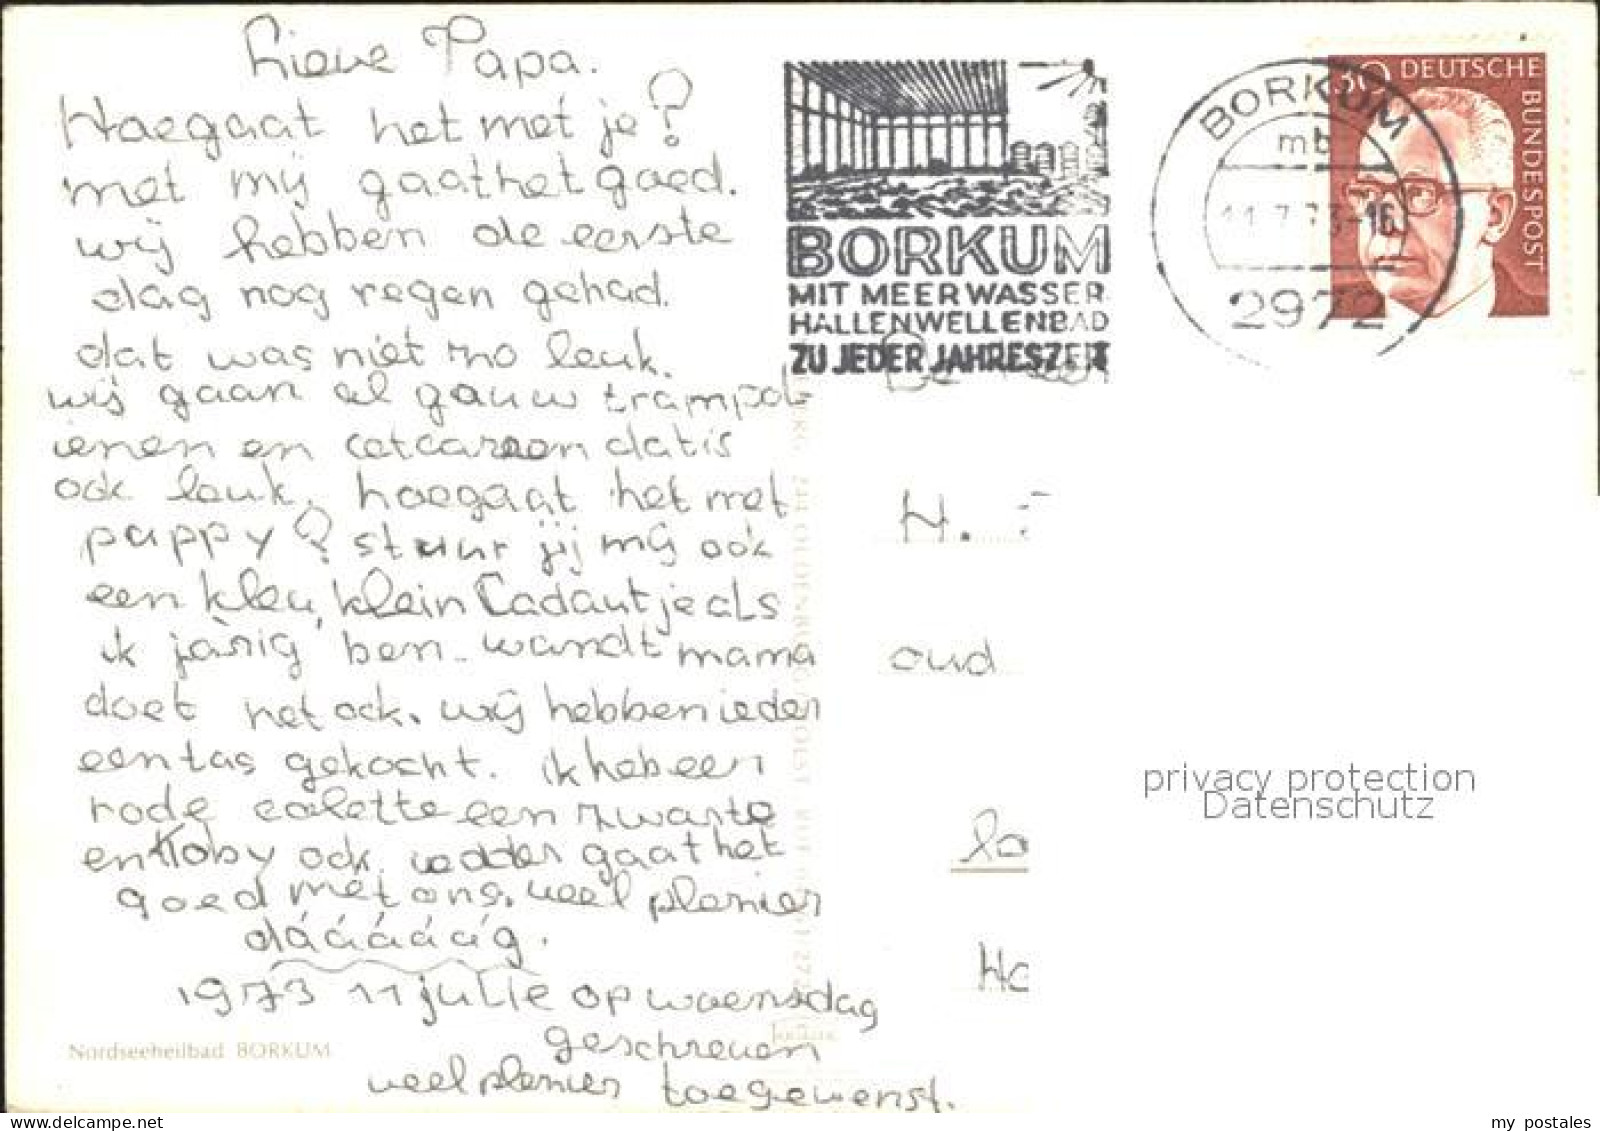 Lieve Papa.
Hoegaat het met je?
met mij gaat het goed.
wij hebben de eerste
dag nog regen gehad.
dat was niet zo leuk.
wij gaan al gauw trampol
ienen en datis
ook leuk. hoegaat het met
pappy? stuur jij mij ook
een klein Cadautje als
ik jarig ben. wandt mama
doet het ook. wij hebben ieder
een tas gekocht. ik heb een
rode een zwarte
en Koby ook. gaat het
goed met ons. veel plezier
dááááág.
1973 11 julie op woensdag
geschreven
veel plezier toegewenst.
Nordseeheilbad BORKUM
BORKUM
MIT MEERWASSER
HALLENWELLENBAD
ZU JEDER JAHRESZEIT
BORKUM
mb
11.7.73-16
2972
30 DEUTSCHE
BUNDESPOST
H.
oud
lo
Ho
privacy protection
Datenschutz
my postales